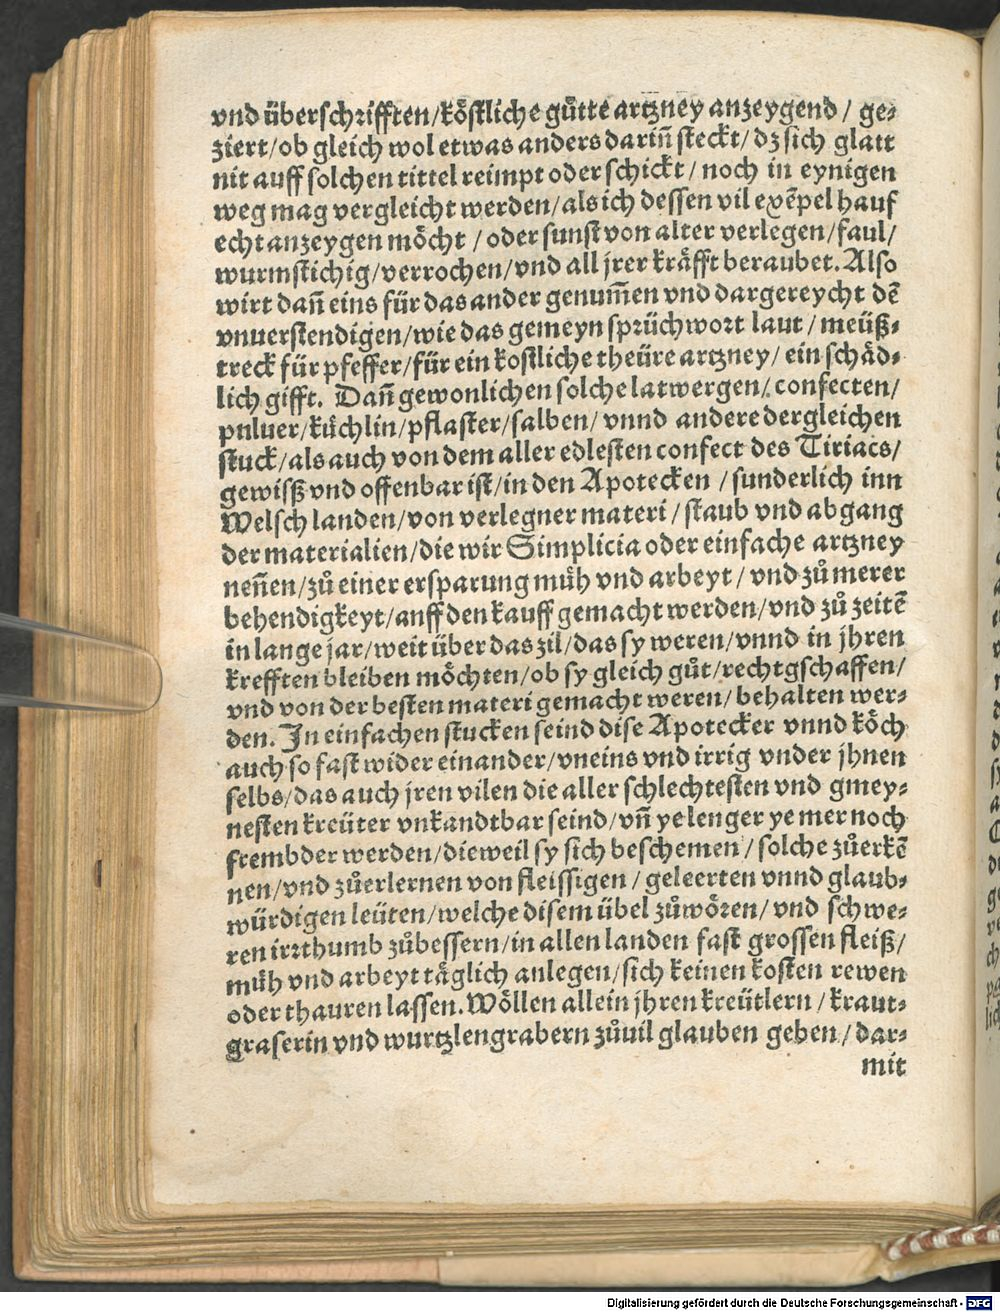 vnd überschrifften/köstliche gůtte artzney anzeygend / ge-
ziert/ob gleich wol etwas anders dariñ steckt/dz sich glatt
nit auff solchen tittel reimpt oder schickt / noch in eynigen
weg mag vergleicht werden/als ich dessen vil exẽpel hauf
echt anzeygen möcht / oder sunst von alter verlegen/faul/
wurmstichig/verrochen/vnd all jrer kräfft beraubet. Also
wirt dañ eins für das ander genum̃en vnd dargereycht dẽ
vnuerstendigen/wie das gemeyn sprüchwort laut / meüß-
treck für pfeffer/für ein kostliche theüre artzney/ ein schäd-
lich gifft. Dañ gewonlichen solche latwergen/ confecten/
puluer/küchlin/pflaster/salben/ vnnd andere dergleichen
stuck/als auch von dem aller edlesten confect des Tiriacs/
gewisß vnd offenbar ist/in den Apotecken / sunderlich inn
Welsch landen/von verlegner materi / staub vnd abgang
der materialien/die wir Simplicia oder einfache artzney
neñen/zů einer ersparung můh vnd arbeyt / vnd zů merer
behendigkeyt/auff den kauff gemacht werden/vnd zů zeitẽ
in lange jar/weit über das zil/das sy weren/vnnd in jhren
krefften bleiben möchten/ob sy gleich gůt/rechtgschaffen/
vnd von der besten materi gemacht weren/behalten wer-
den. In einfachen stucken seind dise Apotecker vnnd köch
auch so fast wider einander/vneins vnd irrig vnder jhnen
selbs/das auch jren vilen die aller schlechtesten vnd gmey-
nesten kreüter vnkandtbar seind/vñ ye lenger ye mer noch
frembder werden/dieweil sy sich beschemen / solche zůerkẽ
nen/vnd zůerlernen von fleissigen / geleerten vnnd glaub-
würdigen leüten/welche disem übel zůwören/ vnd schwe-
ren irrthumb zůbessern/in allen landen fast grossen fleiß/
müh vnd arbeyt täglich anlegen/sich keinen kosten rewen
oder thauren lassen. Wöllen allein jhren kreütlern / kraut-
graserin vnd wurtzlengrabern zůuil glauben geben/ dar-
mit
Digitalisierung gefördert durch die Deutsche Forschungsgemeinschaft - DFG